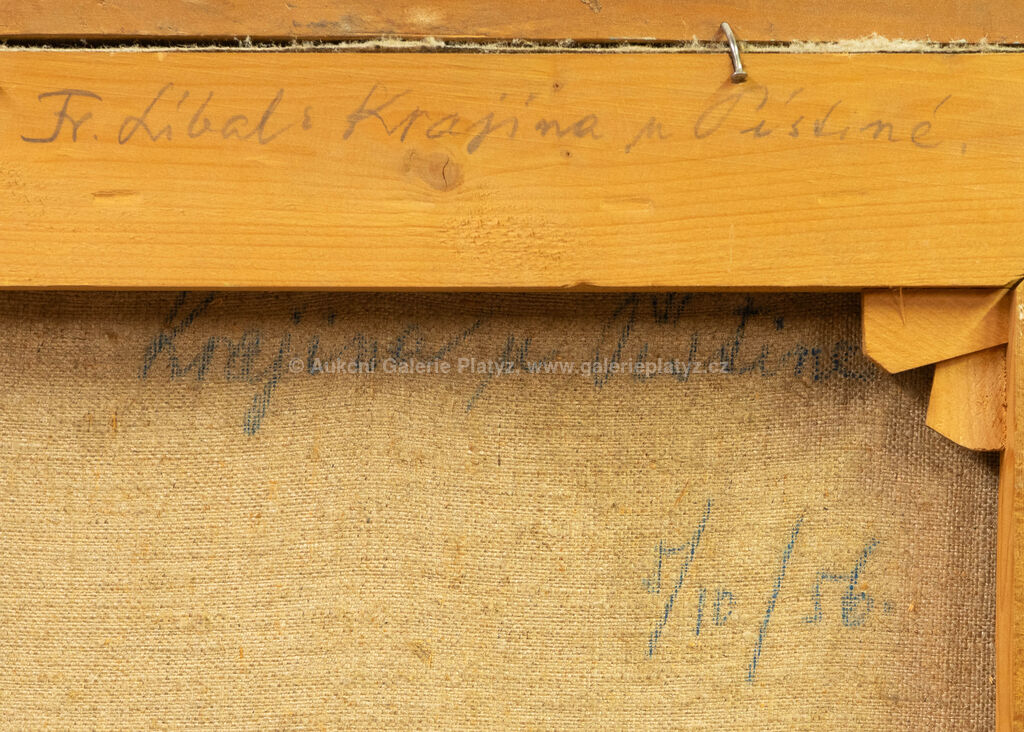 Fr. Líbal: Krajina u Píštiné.
Krajina u Píštiné
© Aukční Galerie Platýz, www.galerieplatyz.cz
5/10/56.